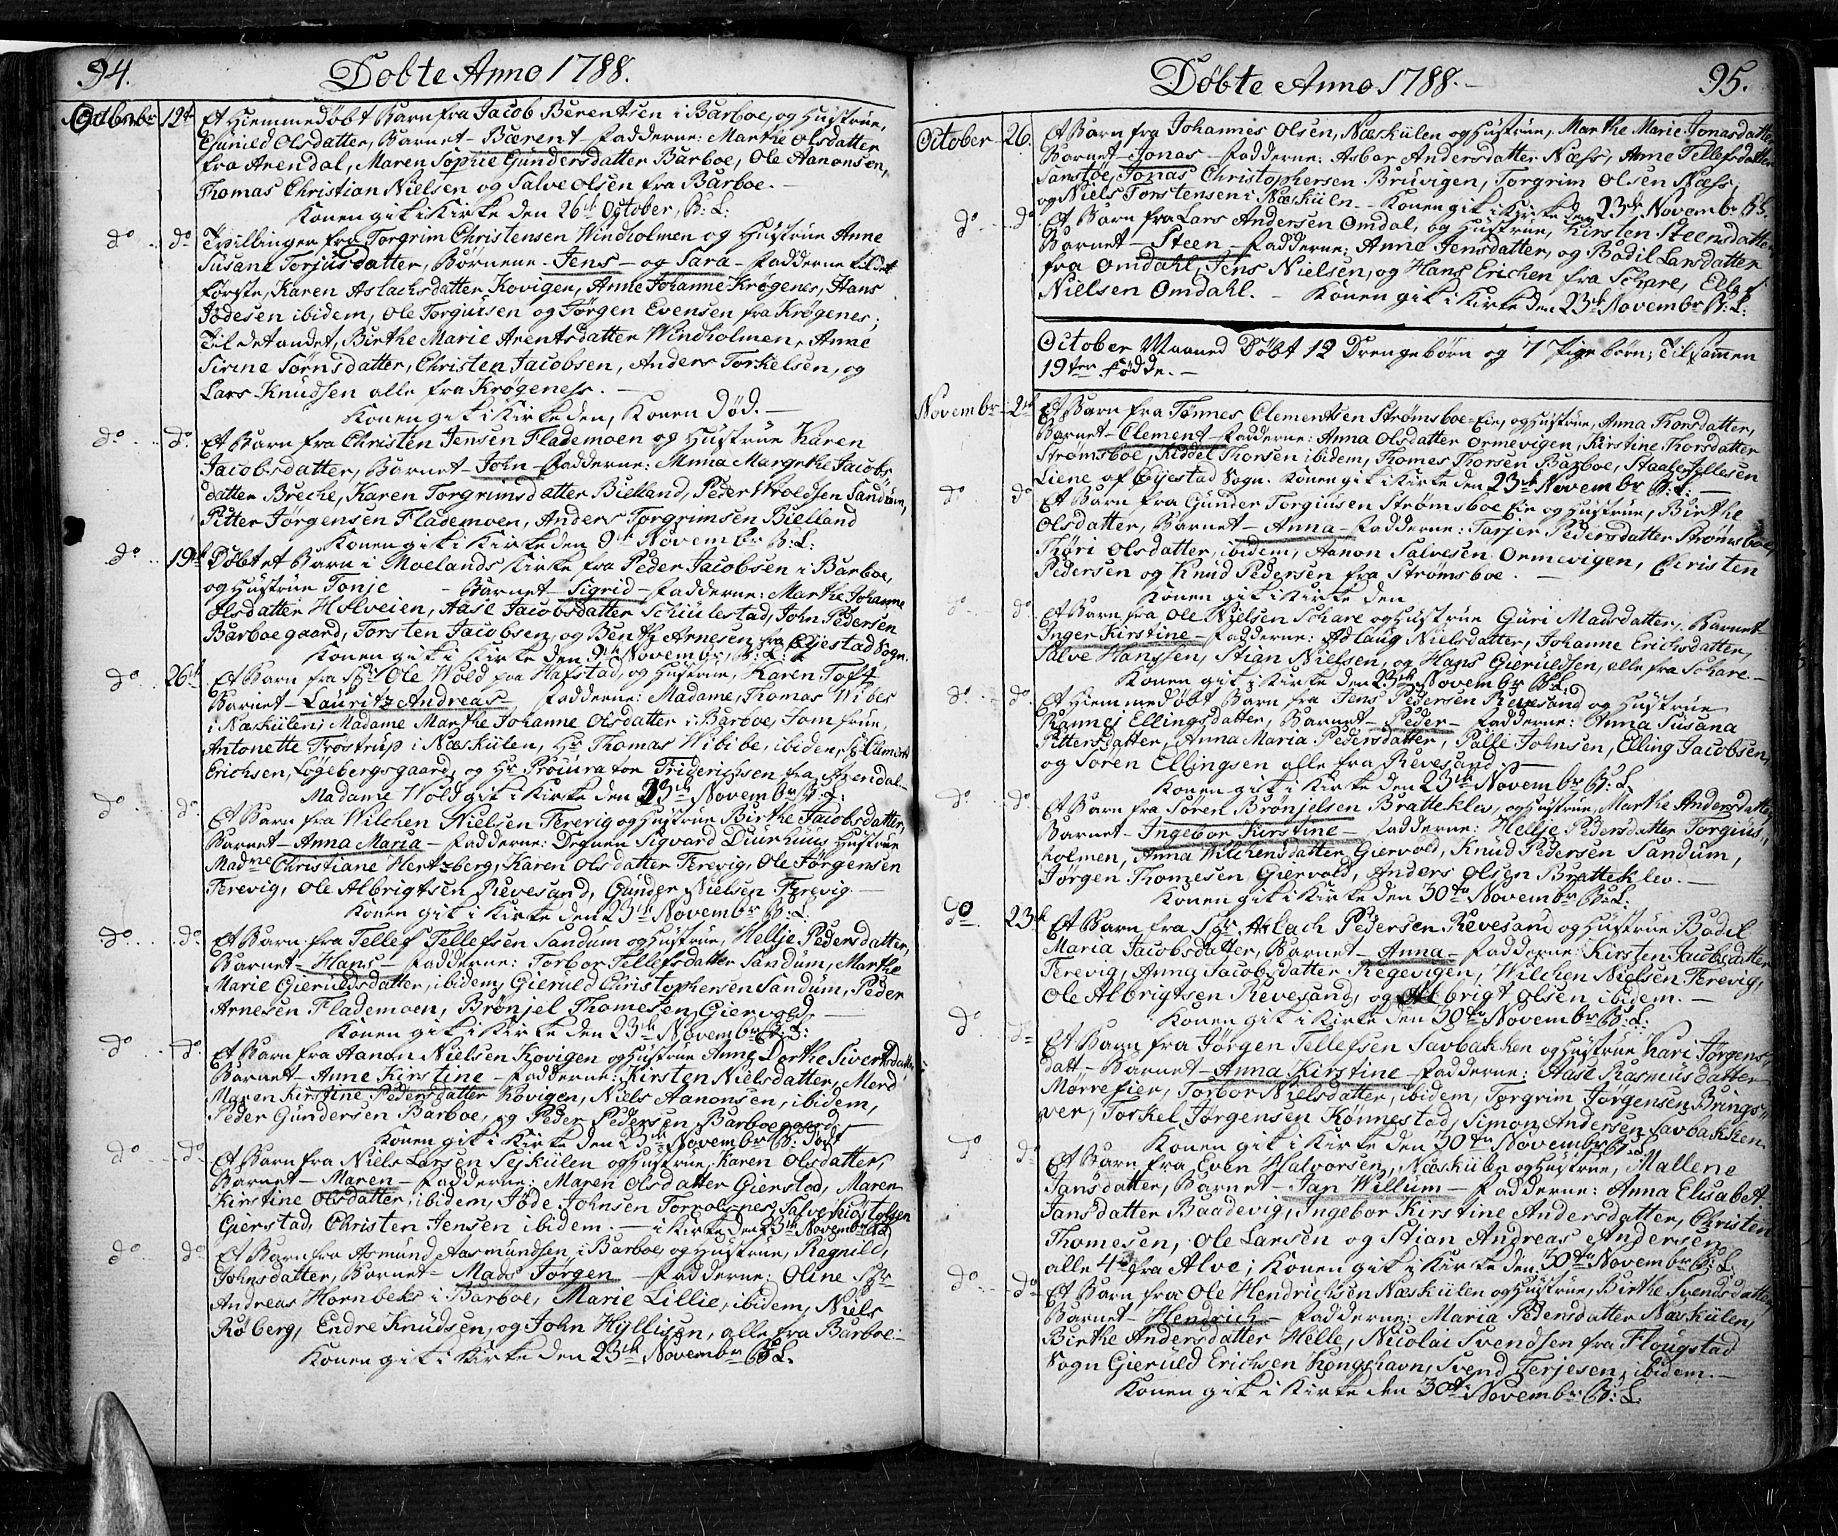 94.
Döbte Anno 1788.
October 12te Et Hiemmedöbt Barn fra Jacob Berentsen i Barboe, og Hustrue,
Gunild Olsdatter, Barnet - Bærent - Fadderne: Marthe Olsdatter
fra Arendal, Maren Sophie Gundersdatter Barboe, Ole Aanonsen,
Thomas Christian Nielsen og Salve Olsen fra Barboe. -
Konen gik i Kirke den 26te October, B: L:
do do Tvillinger fra Torgrim Christensen Windholmen og Hustrue Anne
Susane Torjusdatter, Börnene - Jens - og Sara - Fadderne til det
förste, Karen Aslachsdatter Kovigen, Anne Johanne Krøgenes, Hans
Jödesen ibidem, Ole Torguisen og Jörgen Evensen fra Krøgenes;
Til det andet, Birthe Marie Arentsdatter Windholmen, Anne
Sirine Sörnsdatter, Christen Jacobsen, Anders Torkelsen, og
Lars Knudsen alle fra Krøgeness. -
Konen gik i Kirke den, Konen Död. -
do do Et Barn fra Christen Jensen Flademoen og Hustrue Karen
Jacobsdatter, Barnet - John - Fadderne: Anna Margrethe Jacobs
datter Breche, Karen Torgrimsdatter Bielland, Peder Wroldsen Sandum,
Pitter Jörgensen Flademoen, Anders Torgrimsen Bielland
Konen gik i Kirke den 9te Novembr B: L:
do 19te Döbt et Barn i Moelands Kirke fra Peder Jacobsen i Barboe,
og Hustrue Tonje - Barnet - Sigrid - Fadderne: Marthe Johanne
Olsdatter Holveien, Aase Jacobsdatter Schiulestad, John Pedersen
Barboegaard, Torsten Jacobsen, og Benth Arnesen fra Öjestad Sogn.
Konen gik i Kirke den 9te Novembr, B: L:
do 26te Et Barn fra Sr Ole Wold paa Hafstad, og Hustrue, Karen Toft
Barnet - Lauritz Andreas - Fadderne: Madame Thomas Wibes
i Næskülen, Madame Marthe Johanne Olsdatter i Barboe, Jomfrue
Antonette Tröstrup i Næskülen, Hr Thomas Wibibe, ibidem, Sr Clement
Erichsen, Lögebergsgaard, og Hr Procurator Friderichsen fra Arendal. -
Madame Wold gik i Kirke den 23de Novembr B: L:
do do Et Barn fra Wilchen Nielsen Terevig og Hustrue Birthe Jacobsdatter,
Barnet - Anna Maria - Fadderne: Degnen Sigvard Duurhuus Hustrue
Madme Christiane Hertzberg, Karen Olsdatter Terevig, Ole Jörgensen
Terevig, Ole Albrigtsen Revesand, Gunder Nielsen Terevig -
Konen gik i Kirke den 23de Novembr B: L:
do do Et Barn fra Tellef Tellefsen Sandum og Hustrue, Hellje Pedersdatter,
Barnet - Hans - Fadderne: Torbor Tellefsdatter Sandum, Marthe
Marie Gieruldsdatter, ibidem, Gieruld Christophersen Sandum, Peder
Arnesen Flademoen, Brönjel Thomesen Giervold, -
Konen gik i Kirke den 23de Novembr B: L:
do do Et Barn fra Aanon Nielsen Kovigen og Hustrue Anne Dorthe Sivertsdatter
Barnet - Anne Kirstine - Fadderne: Kirsten Nielsdatter,
Maren Kirstine Pedersdatter Kovigen, Niels Aanonsen, ibidem,
Peder Gundersen Barboe, og Peder Pedersen Barboegaard
Konen gik i Kirke den 23de Novembr B:
do do Et Barn fra Niels Larsen Seskülen og Hustrue, Karen Olsdatter,
Barnet - Maren - Fadderne: Maren Olsdatter Gierstad, Maren
Kirstine Olsdatter, ibidem, Jöde Johnsen Torrolsnes, Salve
Gierstad, Christen Jensen ibidem. - i Kirke den 23de Novembr B: L:
do do Et Barn fra Asmund Aasmundsen i Barboe, og Hustrue, Ragnild,
Johnsdatter, Barnet - Mads Jörgen - Fadderne: Oline Sr
Andreas Hornbeks i Barboe, Marie Lillie, ibidem, Niels
Röberg, Endre Knudsen, og John Hyllisen, alle fra Barboe. -
Konen gik i Kirke den 23de Novembr B: L.
Döbte Anno 1788. - 95.
October 26. Et Barn fra Johannes Olsen, Næskülen og Hustrue, Marthe Marie Jonasdatter
Barnet - Jonas - Fadderne: Asbor Andersdatter Næss, Anne Tellefsdatter
Sanstöe, Jonas Christophersen Bruvigen, Torgrim Olsen Næss,
og Niels Torstensen i Næskülen. - Konen gik i Kirke den 23de Novembr B: L.
do do Et Barn fra Lars Andersen Omdal, og Hustrue, Kirsten Steensdatter
Barnet - Steen - Fadderne: Anne Jensdatter, og Bodil Larsdatter
fra Omdahl, Jens Nielsen, og Hans Erichen fra Schare, Ellef
Nielsen Omdahl. - Konen gik i Kirke den 23de Novembr B: L:
October Maaned Döbt 12 Drengebörn og 7 Pigebörn, Tilsammen
19ten födde. -
Novembr 2de Et Barn fra Tönnes Clementsen Strömsboe-Eie, og Hustrue, Anna Thorsdatter,
Barnet - Clement - Fadderne: Anna Olsdatter Ormevigen, Kirstine Thorsdatter
Strömsboe, Kiddel Thorsen ibidem, Thomes Thorsen Barboe, Staale Jellesen
Liene af Öjestad Sogn. Konen gik i Kirke den 23de Novembr B: L: -
do do Et Barn fra Gunder Torgiusen Strömsboe Eie og Hustrue, Birthe
Olsdatter, Barnet - Anna - Fadderne: Tarjer Pedersdatter Strömsboe,
Thöri Olsdatter, ibidem, Aanon Salvesen Ormevigen, Christen
Pedersen og Knud Pedersen fra Strömsboe. -
Konen gik i Kirke den
do do Et Barn fra Ole Nielsen Schare og Hustrue Guri Madsdatter, Barnet
Inger Kirstine - Fadderne: Adlaug Nielsdatter, Johanne Erichsdatter,
Salve Hanssen, Stian Nielsen, og Hans Gieruldsen, alle fra Schare. -
Konen gik i Kirke den 23de Novembr B: L.
do do Et Hiemmedöbt Barn fra Jens Pedersen Revesand og Hustrue
Rannes Ellingsdatter, Barnet - Peder - Fadderne: Anna Susana
Pittersdatter, Anna Maria Pedersdatter, Palle Johnsen, Elling Jacobsen,
og Sören Ellingsen alle fra Revesand -
Konen gik i Kirke den 23de Novembr B: L.
do do Et Barn fra Sören Brönjelsen Bratteklev, og Hustrue, Marthe Andersdatter,
Barnet - Ingebor Kirstine - Fadderne: Hellje Pedersdatter Torgius,
holmen, Anna Wilchensdatter Giervold, Knud Pedersen Sandum,
Jörgen Thomesen Giervold, Anders Olsen Bratteklev. -
Konen gik i Kirke den 30te Novembr B: L.
do 23de Et Barn fra Sr Aslach Pedersen Revesand og Hustrue Bodil
Maria Jacobsdatter, Barnet - Anna - Fadderne: Kirsten Jacobsdatter
Terevig, Anna Jacobsdatter Regevigen, Wilchen Nielsen Terevig,
Ole Albrigtsen Revesand, og Albrigt Olsen ibidem. -
Konen gik i Kirke den 30te Novembr B: L:
do do Et Barn fra Jörgen Tellefsen Savbakken og Hustrue Kari Jörgens
datt, - Barnet - Anna Kirstine - Fadderne: Aase Rasmusdatter
Morrefier, Torbor Nielsdatter, ibidem, Torgrim Jorgensen Brings,
ver, Torkel Jörgensen Rönnestad, Simon Andersen Savbakken
Konen gik i Kirke den 30te Novembr B: L:
do do Et Barn fra Even Halvorsen, Næskülen og Hustrue, Mallene
Jansdatter, Barnet - Jan Willum - Fadderne: Anna Elisabet
Jansdatter Baadevig, Ingebor Kirstine Andersdatter, Christen
Thomesen, Ole Larsen og Stian Andreas Andersen
alle 4 fra Alve; Konen gik i Kirke den 30te Novembr B: L.
do do Et Barn fra Ole Hendrichsen Næskülen og Hustrue, Birthe Svendsdatter,
Barnet - Hendrich - Fadderne: Maria Pedersdatter Næskülen,
Birthe Andersdatter Helle, Nicolai Svendsen fra Flougstad
Sogn Gieruld Erichsen Kongshavn, Svend Terjesen, ibidem. -
Konen gik i Kirke den 30te Novembr B: L.